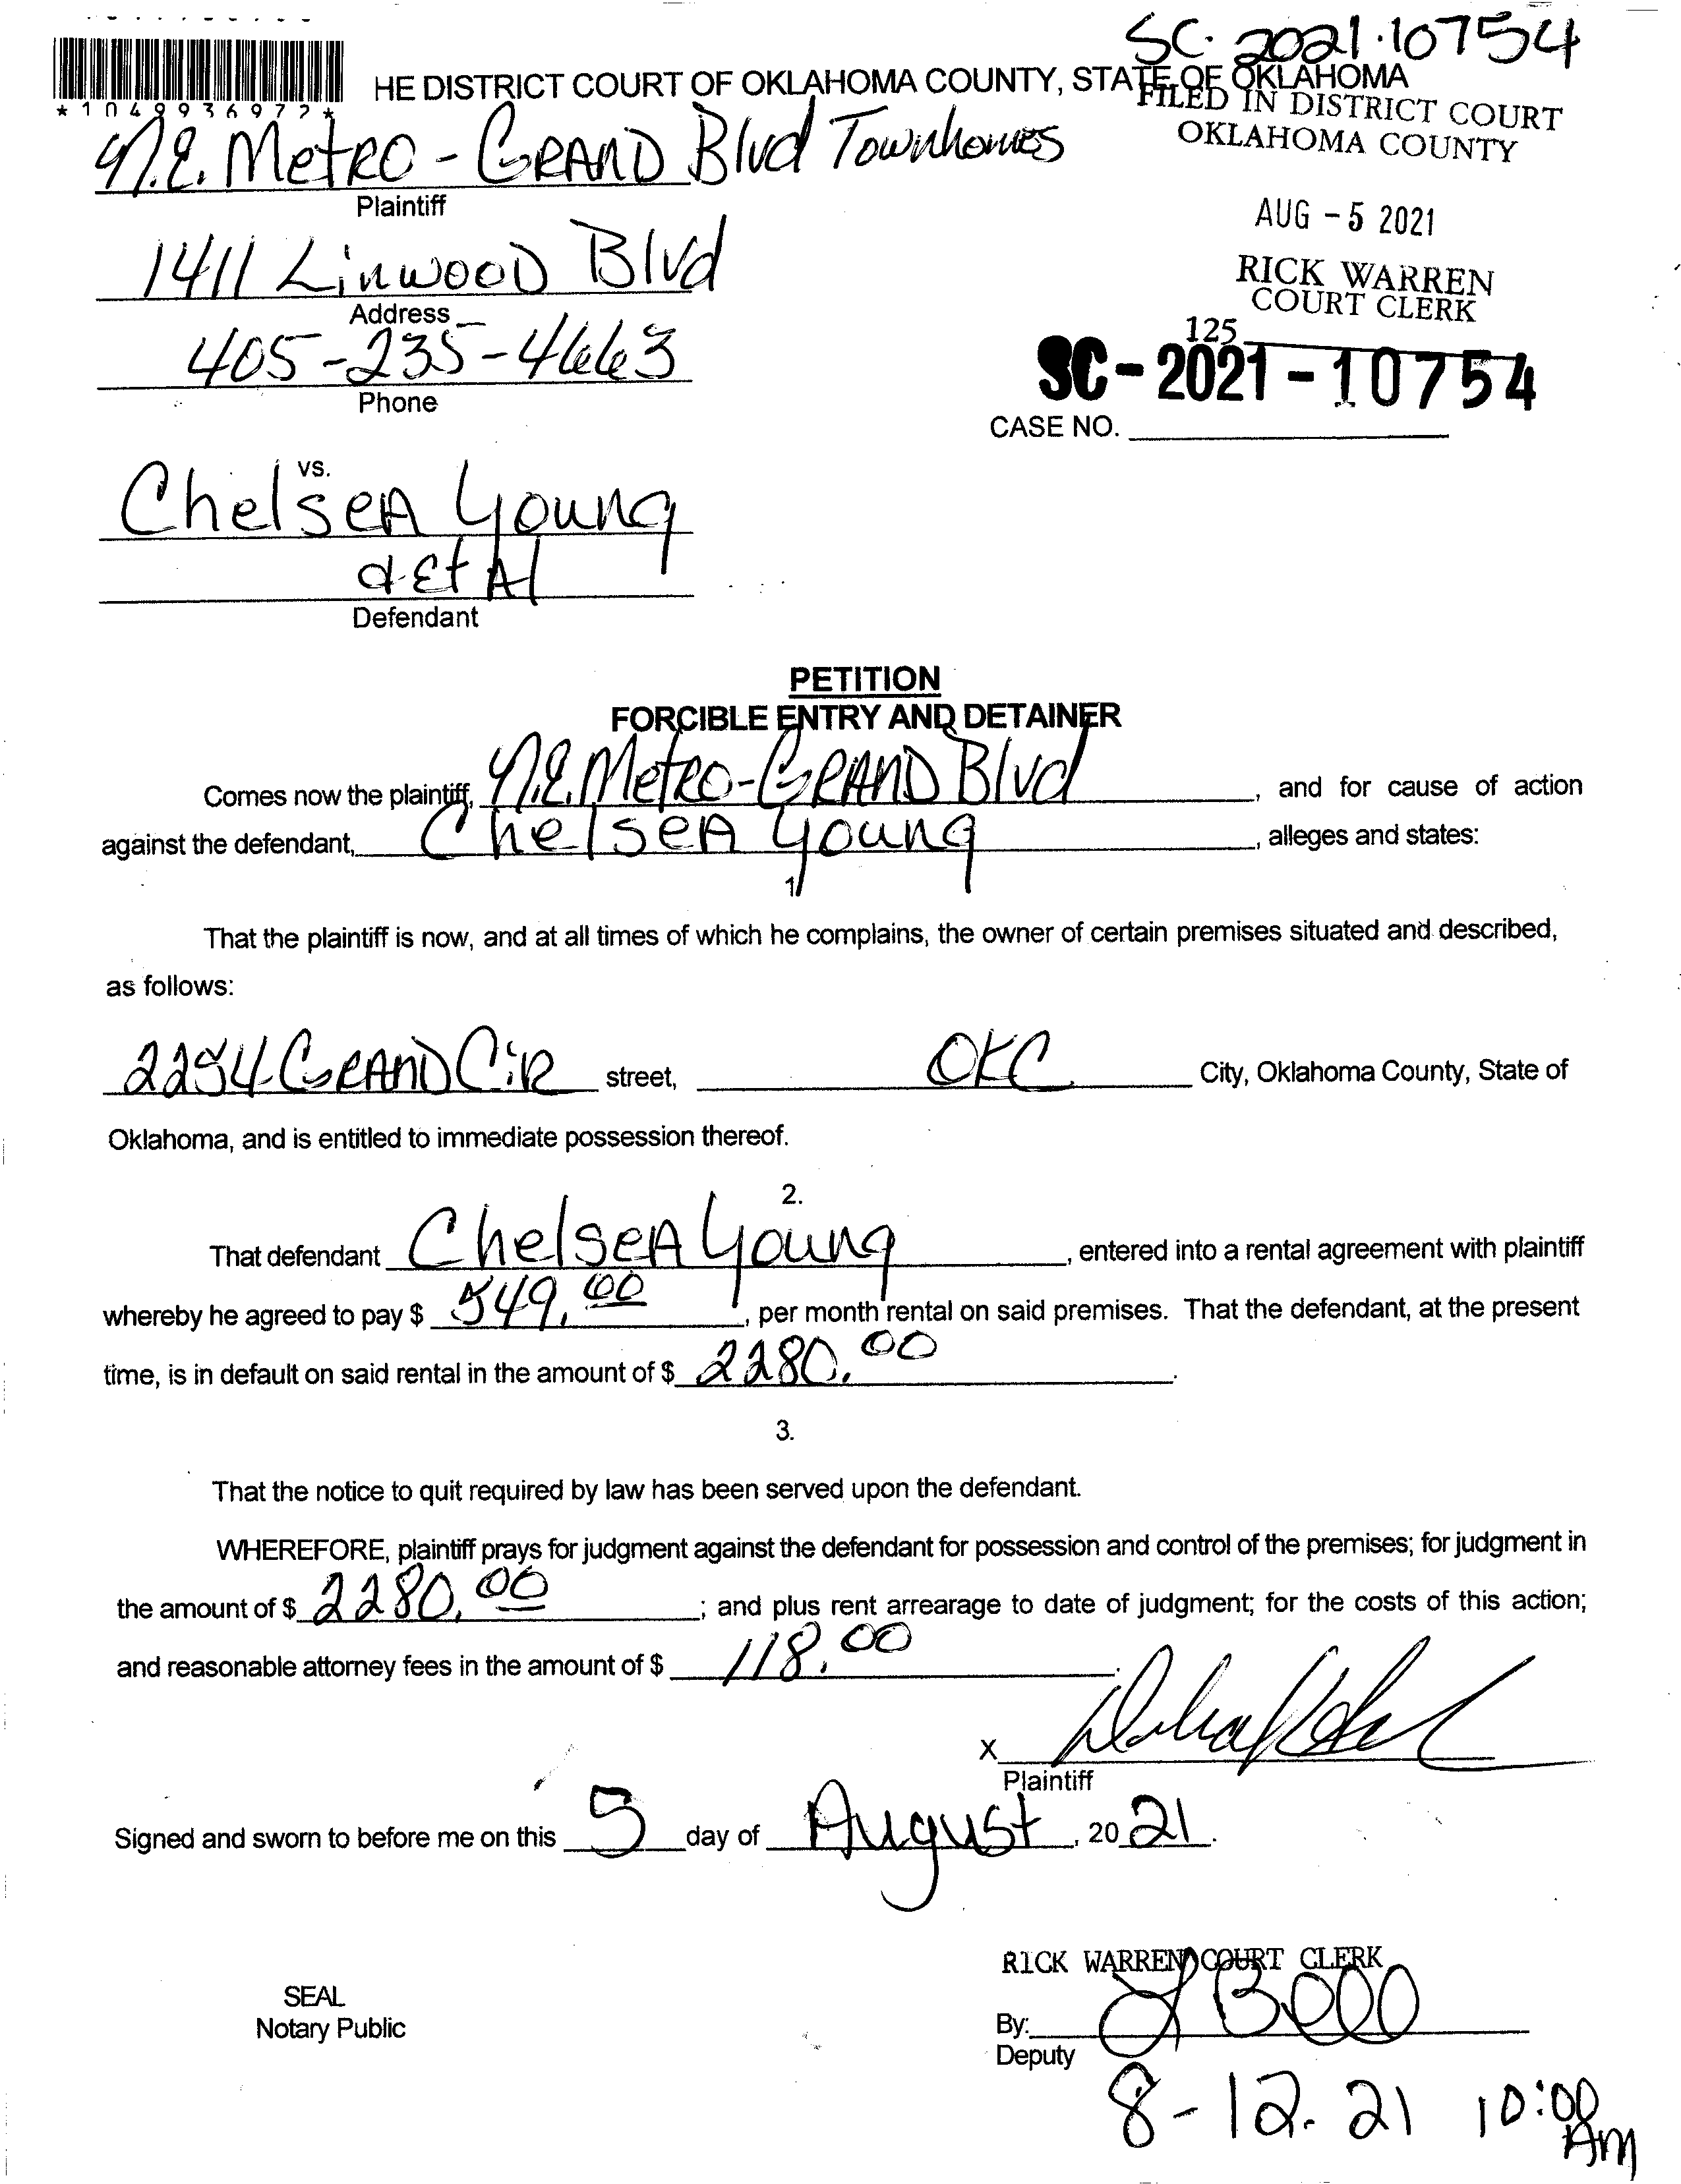 SC-2021-10754
HE DISTRICT COURT OF OKLAHOMA COUNTY, STATE OF OKLAHOMA
*1049936972*
FILED IN DISTRICT COURT
OKLAHOMA COUNTY
N.E. Metro - GRAND Blvd Townhomes
Plaintiff
AUG - 5 2021
1411 Linwood Blvd
Address
RICK WARREN
COURT CLERK
405-235-4663
Phone
125
SC - 2021 - 10754
CASE NO.
vs.
Chelsea Young
& Et Al
Defendant
PETITION
FORCIBLE ENTRY AND DETAINER
Comes now the plaintiff, N.E. Metro-GRAND Blvd, and for cause of action
against the defendant, Chelsea Young, alleges and states:
1
That the plaintiff is now, and at all times of which he complains, the owner of certain premises situated and described,
as follows:
2254 GRAND CiR street, OKC City, Oklahoma County, State of
Oklahoma, and is entitled to immediate possession thereof.
2.
That defendant Chelsea Young, entered into a rental agreement with plaintiff
whereby he agreed to pay $ 549.00, per month rental on said premises. That the defendant, at the present
time, is in default on said rental in the amount of $ 2280.00.
3.
That the notice to quit required by law has been served upon the defendant.
WHEREFORE, plaintiff prays for judgment against the defendant for possession and control of the premises; for judgment in
the amount of $ 2280.00; and plus rent arrearage to date of judgment; for the costs of this action;
and reasonable attorney fees in the amount of $ 118.00.
X
Plaintiff
Signed and sworn to before me on this 5 day of August, 20 21.
RICK WARREN COURT CLERK
SEAL
Notary Public
By:
Deputy
8-12-21 10:00
Am